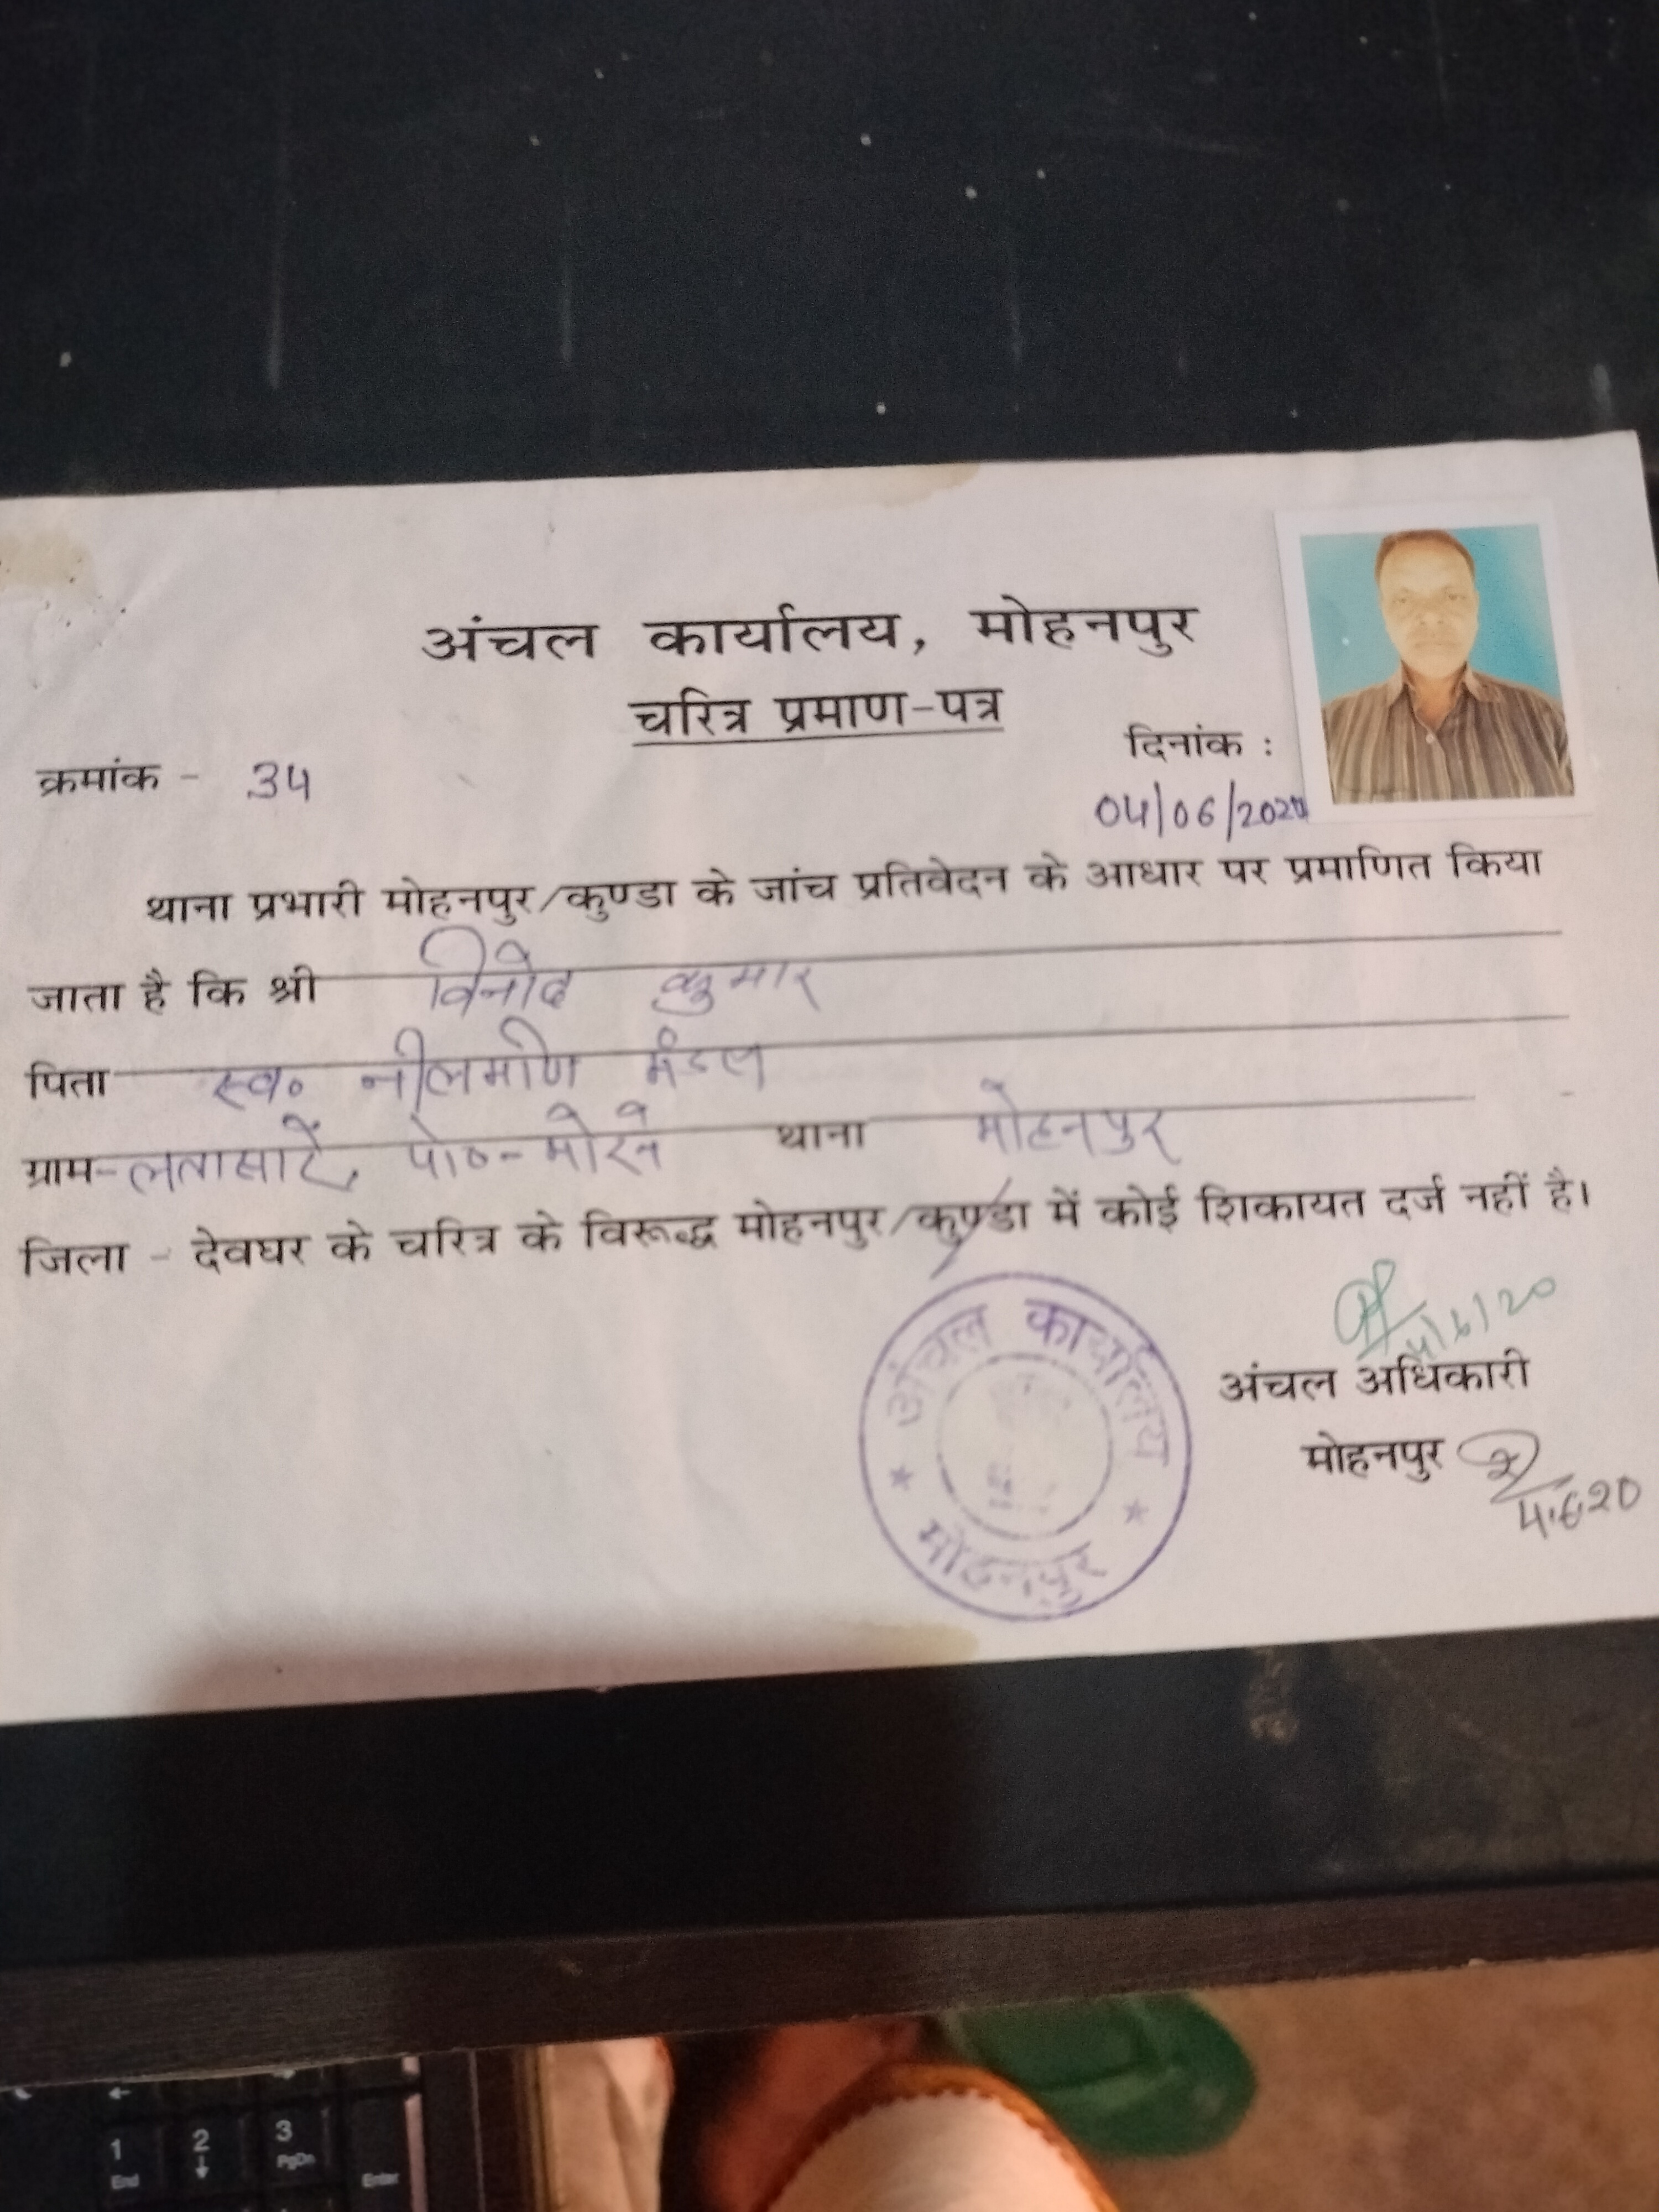 अंचल कार्यालय, मोहनपुर
चरित्र प्रमाण-पत्र
क्रमांक - 34
दिनांक :
04/06/2020
थाना प्रभारी मोहनपुर/कुण्डा के जांच प्रतिवेदन के आधार पर प्रमाणित किया
जाता है कि श्री विनोद कुमार
पिता स्व० नीलमणि मंडल
ग्राम- पो०- थाना मोहनपुर
जिला - देवघर के चरित्र के विरूद्ध मोहनपुर/कुण्डा में कोई शिकायत दर्ज नहीं है।
4/6/20
अंचल अधिकारी
मोहनपुर
4.6.20
अंचल कार्यालय
मोहनपुर
1 2 3
End ↓ PgDn Enter